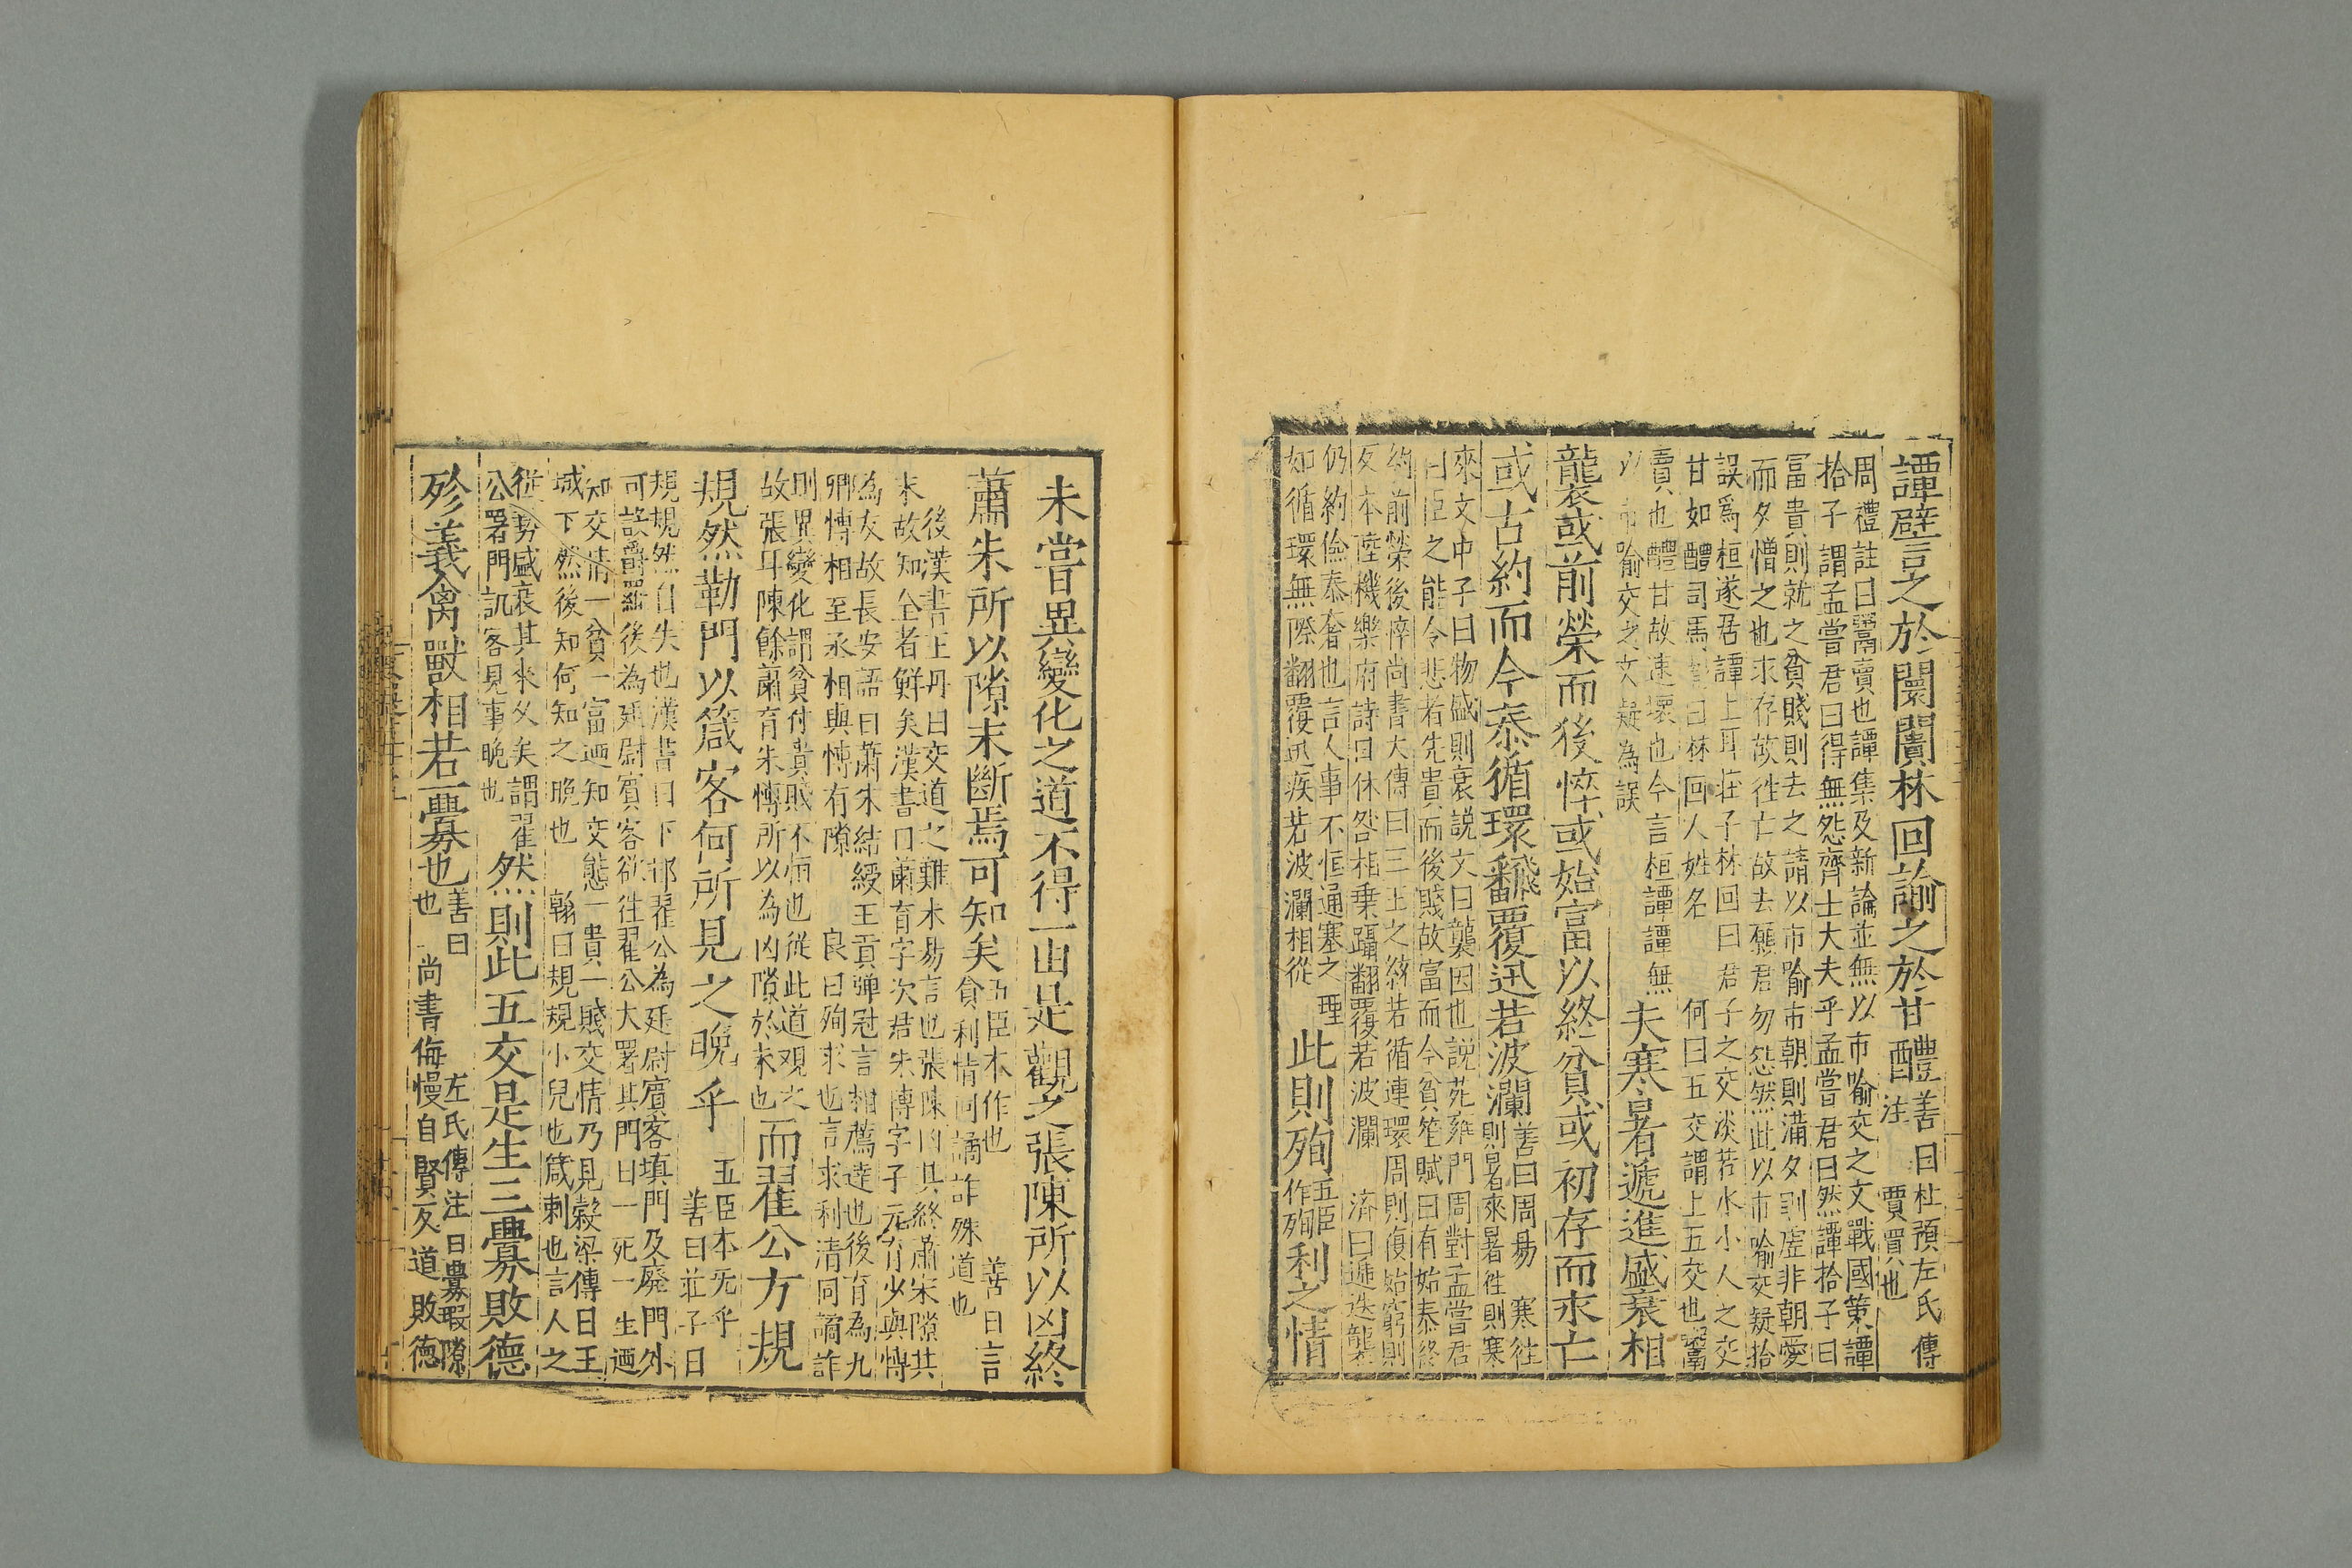 譚譬言之於闤闠林回諭之於甘醴善曰杜預左氏傳
注賈買也
周禮註曰鬻賣也譚集及新論並無以市喻交之文戰國策譚
拾子謂孟嘗君曰得無怨齊士大夫乎孟嘗君曰然譚拾子曰
富貴則就之貧賤則去之請以市喻市朝則滿夕則虛非朝愛
而夕憎之也求存故徃亡故去願君勿怨然此以市喻交疑拾
誤爲桓遂居譚上耳莊子林回曰君子之交淡若水小人之交
甘如醴司馬彪曰林回人姓名何曰五交謂上五交也鬻
賣也醴甘故速壞也今言桓譚譚無
以市喻交之文疑為誤
夫寒暑遞進盛衰相
襲或前榮而後悴或始富以終貧或初存而末亡
或古約而今泰循環飜覆迅若波瀾善曰周易寒徃
則暑來暑徃則寒
來文中子曰物盛則衰説文曰襲因也説苑雍門周對孟嘗君
曰臣之能令悲者先貴而後賤故富而今貧笙賦曰有始泰終
約前榮後悴尚書大傳曰三王之統若循連環周則復始窮則
反本陸機樂府詩曰休咎相乗躡翻覆若波瀾濟曰遞迭襲
仍約儉泰奢也言人事不恒通塞之理
如循環無際翻覆迅疾若波瀾相從
此則殉五臣
作殉利之情
未嘗異變化之道不得一由是觀之張陳所以凶終
蕭朱所以隙末斷焉可知矣五臣本作也善曰言
貪利情同譎詐殊道也
後漢書王丹曰交道之難未易言也張陳凶其終蕭朱隙其
末故知全者鮮矣漢書曰蕭育字次君朱博字子元育少與博
為友故長安語曰蕭朱結綬王貢彈冠言相薦達也後育為九
卿博相至丞相與博有隙良曰殉求也言求利清同譎詐
則異變化謂貧付貴賤不恒也從此道觀之
故張耳陳餘蕭育朱博所以為凶隙於末也
而翟公方規
規然勒門以箴客何所見之晚乎五臣本无乎
善曰莊子曰
規規然自失也漢書曰下邽翟公為廷尉賓客填門及廢門外
可設爵羅後為廷尉賓客欲徃翟公大署其門曰一死一生迺
知交情一貧一富迺知交態一貴一賤交情乃見穀梁傳曰王
城下然後知何知之晚也翰曰規規小兒也箴刺也言人之
從勢盛衰其來乆矣謂翟
公署門譏客見事晚也
然則此五交是生三釁敗德
殄義禽獸相若一釁也善曰左氏傳注曰釁瑕隙
也尚書侮慢自賢反道敗德